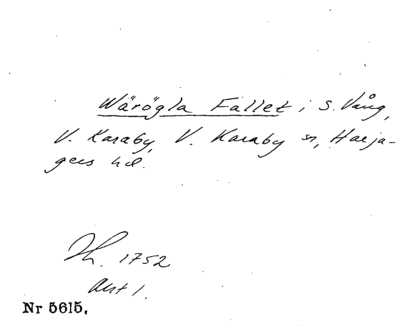 Wärögla Fallet i S. Vång,
V. Karaby, V. Karaby sn, Harja-
gers hd.
Lh. 1752
Akt 1.
Nr 5615.